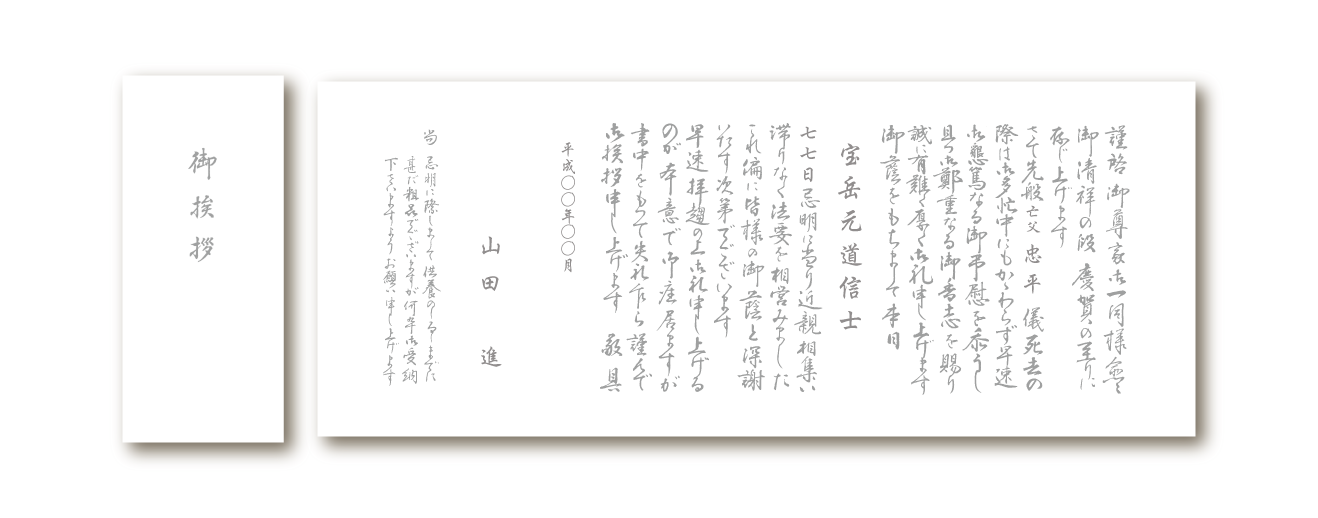 御挨拶
謹啓 御尊家御一同様愈々
御清祥の段 慶賀の至りに
存じ上げます
さて先般亡父 忠平 儀死去の
際は御多忙中にもかゝわらず早速
御懇篤なる御弔慰を忝うし
且つ御鄭重なる御香志を賜り
誠に有難く厚く御礼申し上げます
御蔭をもちまして本日
宝岳元道信士
七七日忌明に当り近親相集い
滞りなく法要を相営みました
これ偏に皆様の御蔭と深謝
いたす次第でございます
早速拝趨の上御礼申し上げる
のが本意で御座居ますが
書中をもって失礼乍ら謹んで
御挨拶申し上げます 敬具
平成〇〇年〇〇月
山田 進
尚 忌明に際しまして供養のしるしまでに
甚だ粗品でございますが何卒御受納
下さいますようお願い申し上げます